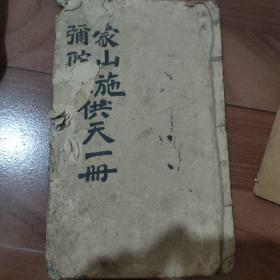 蒙山施供天一册
彌陀